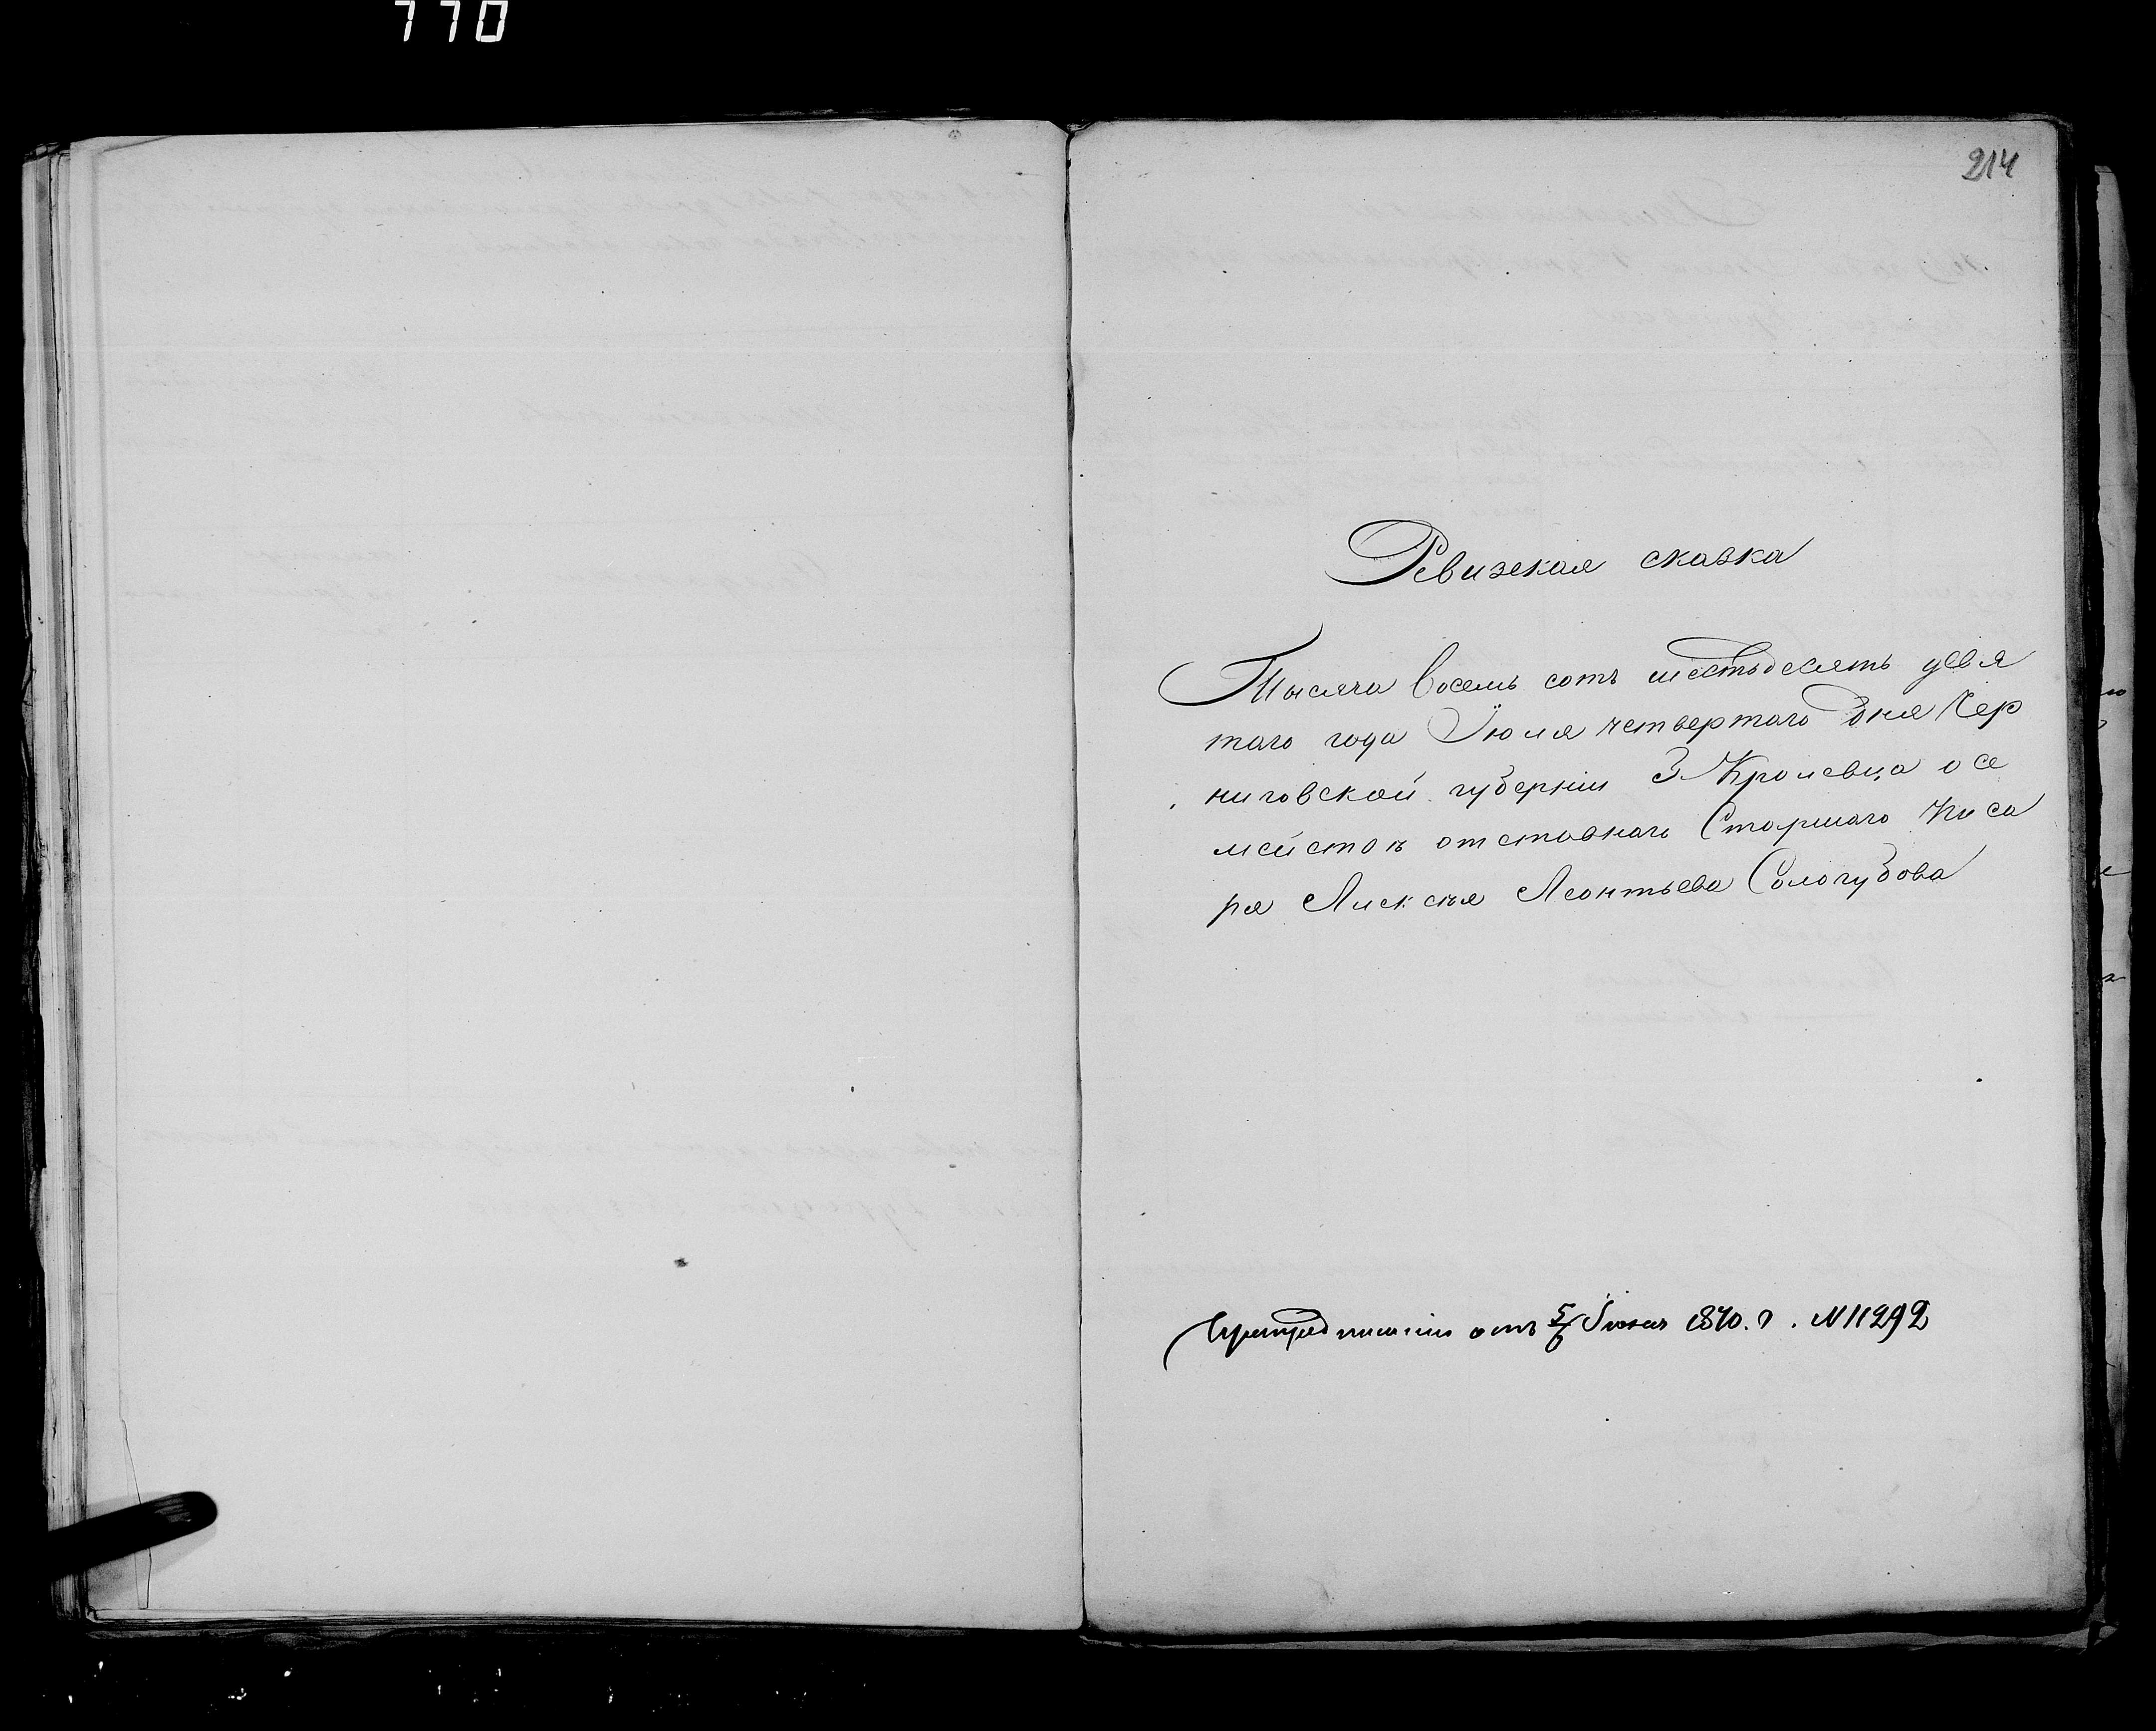 770
214
Ревизская сказка
Тысяча восемь сотъ шестьдесятъ девя
таго года Іюля четвертаго дня Чер
ниговской губерніи З Кролевца о се
мействѣ отставнаго Старшаго Писа
ря Алексѣя Леонтьева Сологубова
При предписаніи отъ 5/6 Іюня 1870. г. N 11292